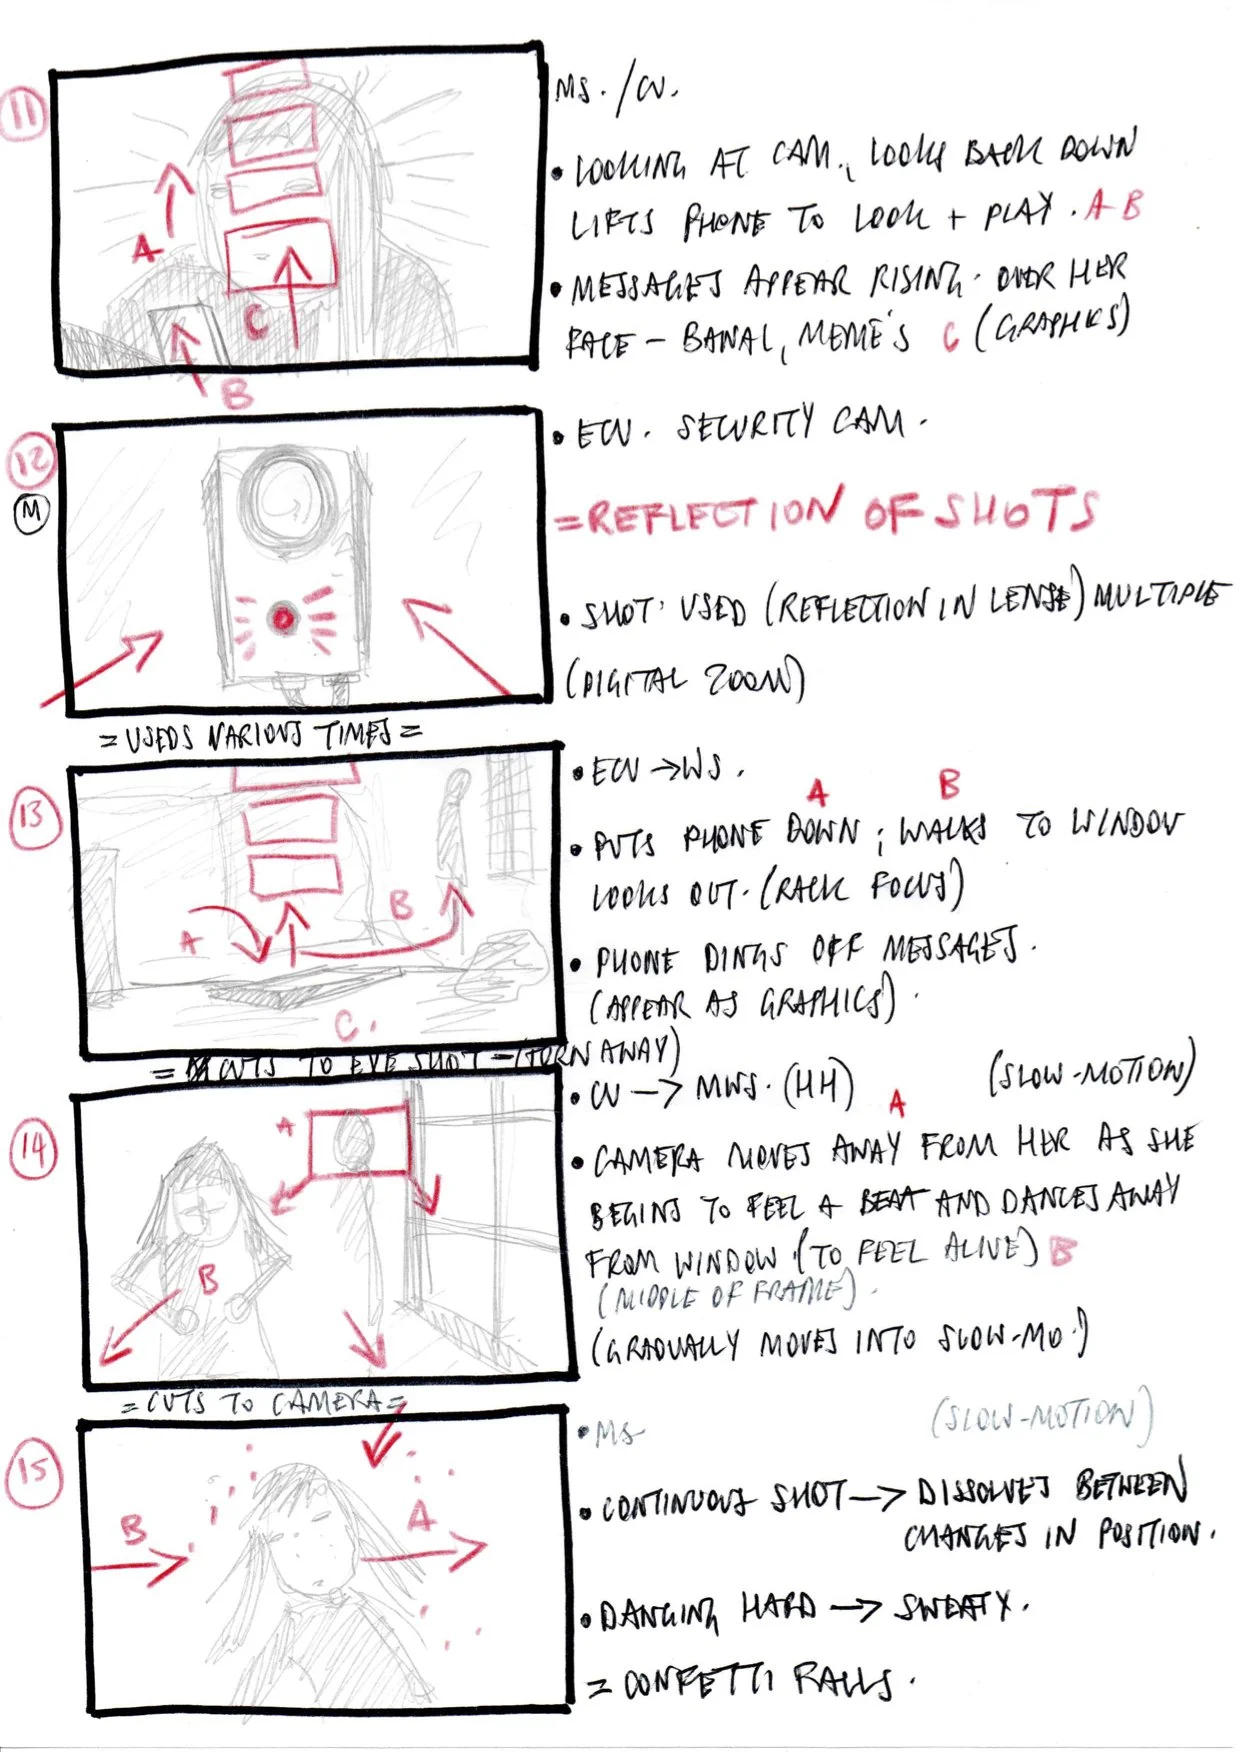 11
MS. / CU.
• LOOKING AT CAM, LOOKS BACK DOWN
LIFTS PHONE TO LOOK + PLAY. A B
• MESSAGES APPEAR RISING OVER HER
FACE – BANAL, MEME'S C (GRAPHICS)
A
C
B
12
M
• ECU. SECURITY CAM.
= REFLECTION OF SHOTS
• SHOT USED (REFLECTION IN LENSE) MULTIPLE
(DIGITAL ZOOM)
= USEDS VARIOUS TIMES =
13
• ECU → WS.
A B
• PUTS PHONE DOWN; WALKS TO WINDOW
LOOKS OUT. (RACK FOCUS)
• PHONE DINGS OFF MESSAGES.
(APPEAR AS GRAPHICS).
A
B
C.
= CUTS TO EYE SHOT – (TURN AWAY)
14
• CU → MWS. (HH) (SLOW-MOTION)
A
• CAMERA MOVES AWAY FROM HER AS SHE
BEGINS TO FEEL A BEAT AND DANCES AWAY
FROM WINDOW. (TO FEEL ALIVE) B
(MIDDLE OF FRAME).
(GRADUALLY MOVES INTO SLOW-MO.)
A
B
= CUTS TO CAMERA =
15
• MS (SLOW-MOTION)
• CONTINUOUS SHOT → DISSOLVES BETWEEN
CHANGES IN POSITION.
• DANCING HARD → SWEATY.
= CONFETTI FALLS.
B
A